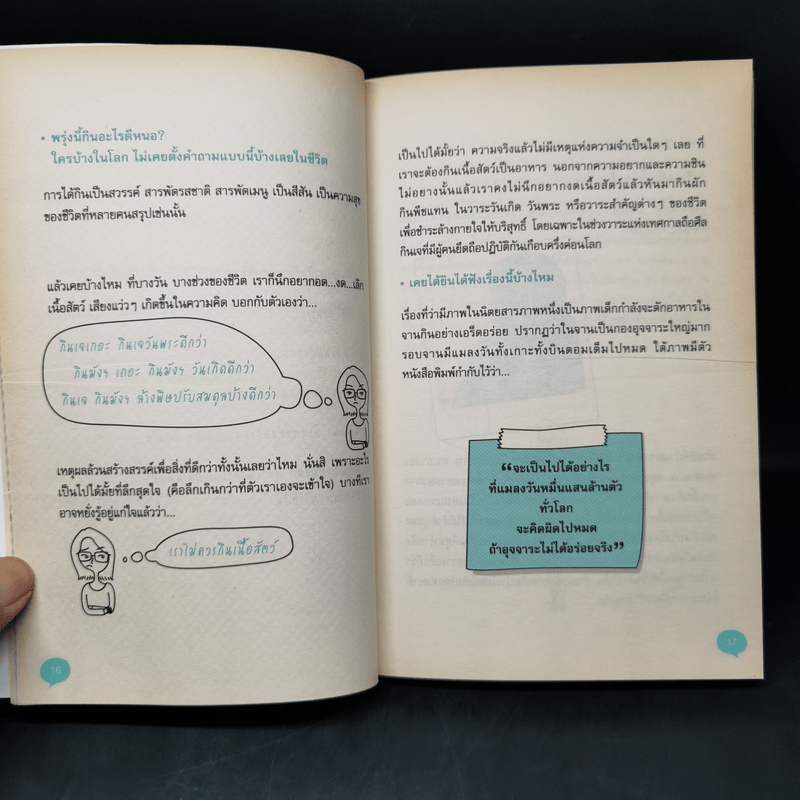 • พรุ่งนี้กินอะไรดีหนอ?
ใครบ้างในโลก ไม่เคยตั้งคำถามแบบนี้บ้างเลยในชีวิต
การได้กินเป็นสวรรค์ สารพัดรสชาติ สารพัดเมนู เป็นสีสัน เป็นความสุข
ของชีวิตที่หลายคนสรุปเช่นนั้น
แล้วเคยบ้างไหม ที่บางวัน บางช่วงของชีวิต เราก็นึกอยากอด...งด...เลิก
เนื้อสัตว์ เสียงแว่วๆ เกิดขึ้นในความคิด บอกกับตัวเองว่า...
กินเจเถอะ กินเจวันพระดีกว่า
กินมังฯ เถอะ กินมังฯ วันเกิดดีกว่า
กินเจ กินมังฯ ล้างพิษปรับสมดุลบ้างดีกว่า
เหตุผลล้วนสร้างสรรค์เพื่อสิ่งที่ดีกว่าทั้งนั้นเลยว่าไหม นั่นสิ เพราะอะไร
เป็นไปได้มั้ยที่ลึกสุดใจ (คือลึกเกินกว่าที่ตัวเราเองจะเข้าใจ) บางทีเรา
อาจหยั่งรู้อยู่แก่ใจแล้วว่า...
เราไม่ควรกินเนื้อสัตว์
16
เป็นไปได้มั้ยว่า ความจริงแล้วไม่มีเหตุแห่งความจำเป็นใดๆ เลย ที่
เราจะต้องกินเนื้อสัตว์เป็นอาหาร นอกจากความอยากและความชิน
ไม่อย่างนั้นแล้วเราคงไม่นึกอยากงดเนื้อสัตว์แล้วหันมากินผัก
กินพืชแทน ในวาระวันเกิด วันพระ หรือวาระสำคัญต่างๆ ของชีวิต
เพื่อชำระล้างกายใจให้บริสุทธิ์ โดยเฉพาะในช่วงวาระแห่งเทศกาลถือศีล
กินเจที่มีผู้คนยึดถือปฏิบัติกันเกือบครึ่งค่อนโลก
• เคยได้ยินได้ฟังเรื่องนี้บ้างไหม
เรื่องที่ว่ามีภาพในนิตยสารภาพหนึ่งเป็นภาพเด็กกำลังจะตักอาหารใน
จานกินอย่างเอร็ดอร่อย ปรากฏว่าในจานเป็นกองอุจจาระใหญ่มาก
รอบจานมีแมลงวันทั้งเกาะทั้งบินตอมเต็มไปหมด ใต้ภาพมีตัว
หนังสือพิมพ์กำกับไว้ว่า...
“จะเป็นไปได้อย่างไร
ที่แมลงวันหมื่นแสนล้านตัว
ทั่วโลก
จะคิดผิดไปหมด
ถ้าอุจจาระไม่ได้อร่อยจริง”
17